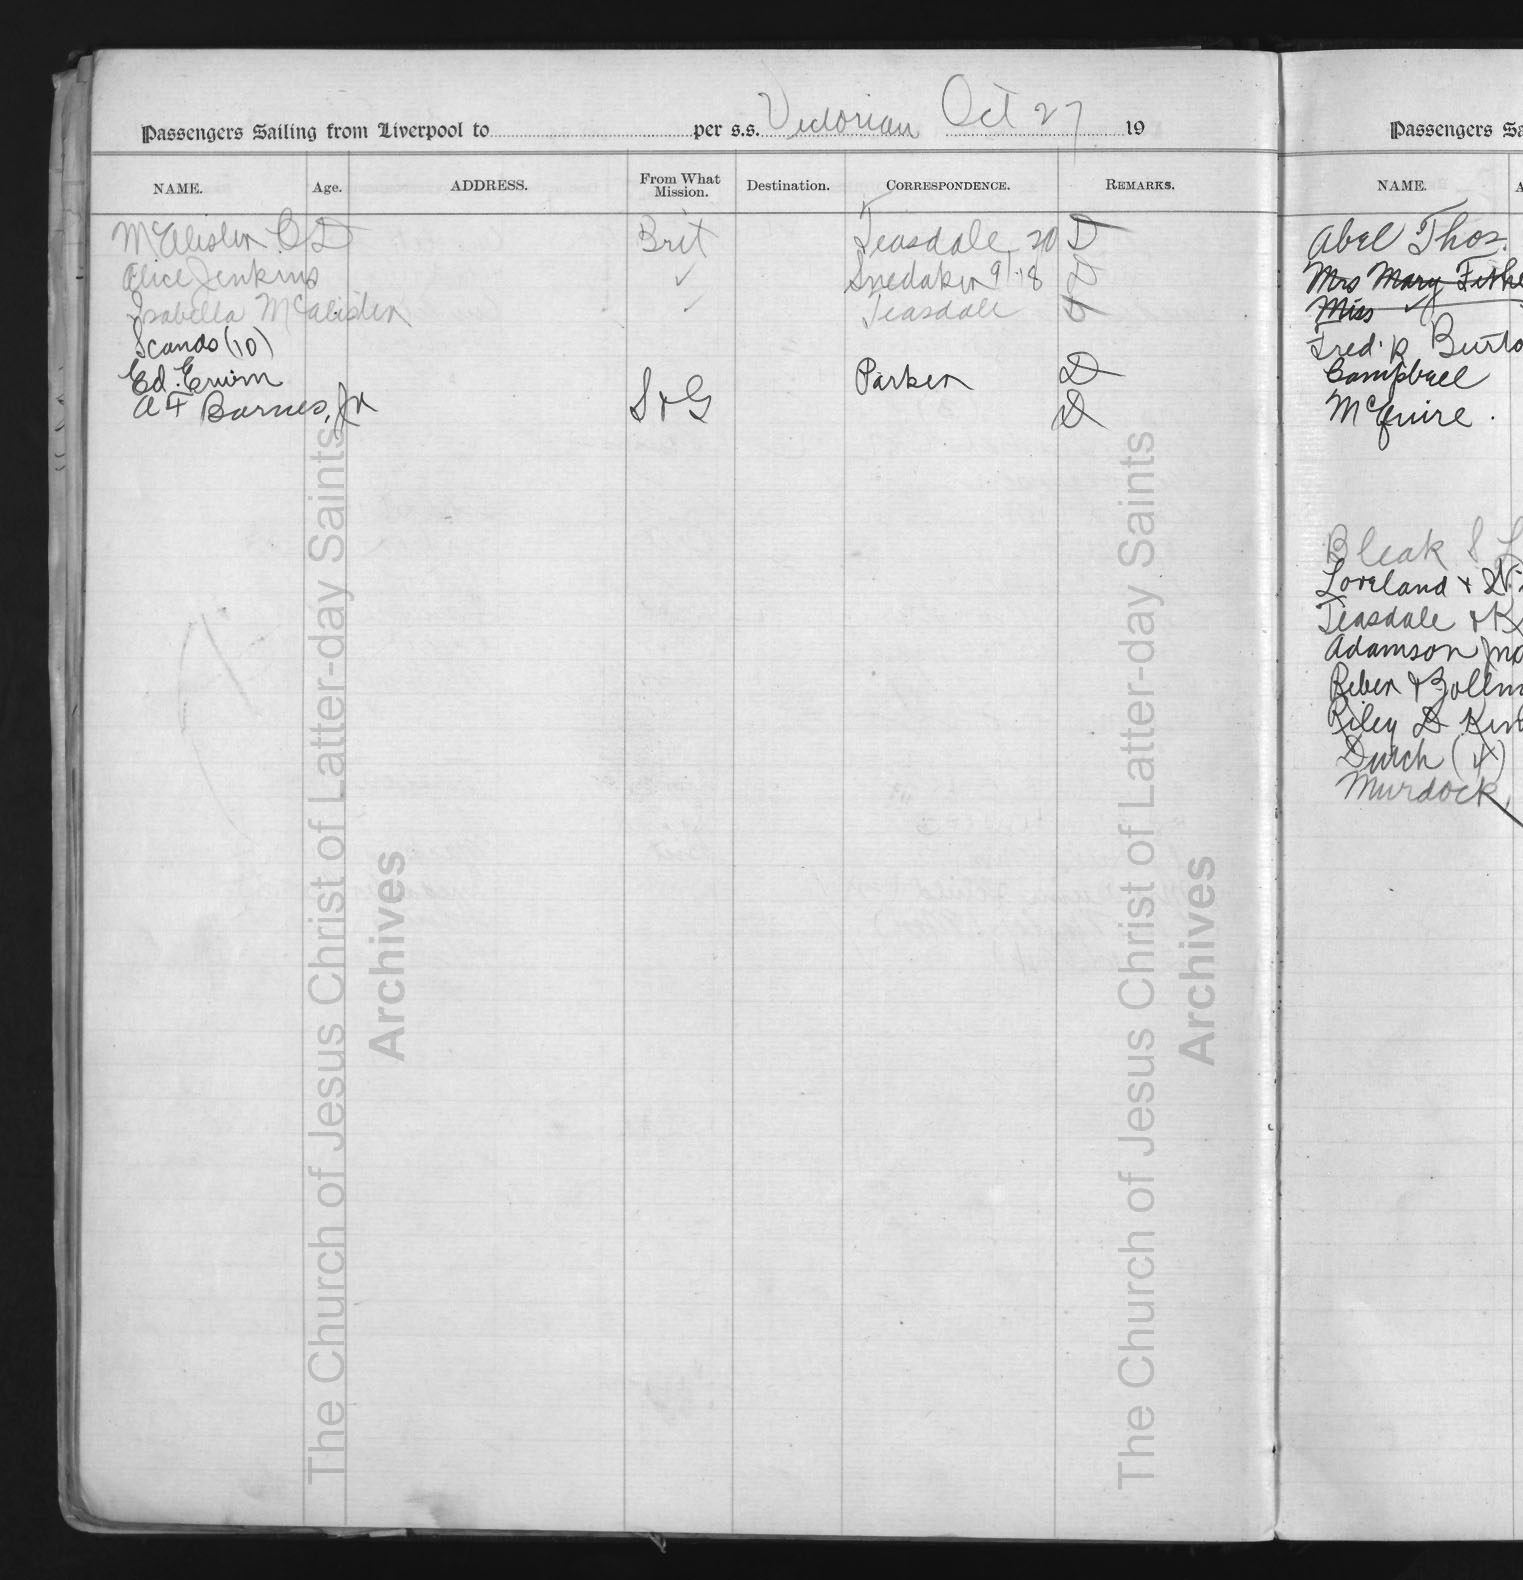 Passengers Sailing from Liverpool to per s.s. Victorian Oct 27 19
NAME. Age. ADDRESS. From What Mission. Destination. CORRESPONDENCE. REMARKS.
McAlister Brit Teasdale 20 D
Alice Jenkins ✓ Snedaker 9/18
Isabella McAlister ✓ Teasdale
Scands (10)
Ed. Erwin Parker D
A F Barnes, Jr S & G D
Passengers Sa
NAME. A
Abel Thos.
Mrs Mary
Miss
Fred. R Burto
Campbell
McGuire.
Bleak S L
Loveland &
Teasdale & K
Adamson Jno
Reber & Bollm
Riley D
Dutch (4)
Murdock,
The Church of Jesus Christ of Latter-day Saints
Archives
The Church of Jesus Christ of Latter-day Saints
Archives